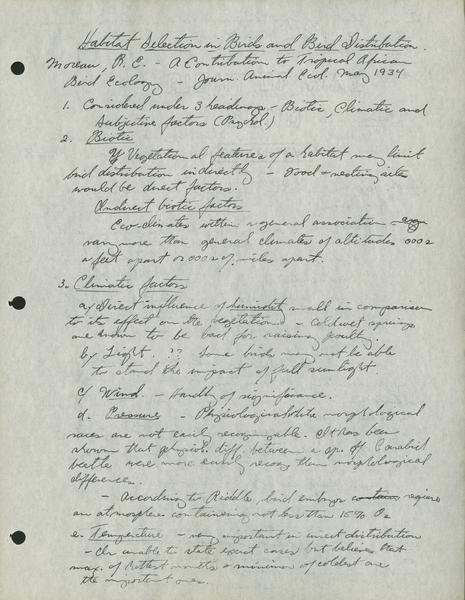 Habitat Selection in Birds and Bird Distribution.
Moreau, R.E. - A Contribution to Tropical African
Bird Ecology - Journ. Animal Ecol. May 1934
1. Considered under 3 headings - Biotic, Climatic and
Subjective factors (Psychol)
2. Biotic
If Vegetational features of a habitat may limit
bird distribution indirectly - Food & nesting sites
would be direct factors.
Indirect biotic factors
Eco-climates within a general association
vary more than general climates of altitudes 000s
a feet apart or 000s of miles apart.
3. Climatic factors
a/ Direct influence of humidity small in comparison
to its effect on the vegetation - Cold wet springs
are known to be bad for raising poultry
b/ Light. ?? Some birds may not be able
to stand the impact of full sunlight.
c/ Wind - Hardly of significance.
d. Pressure - Physiological while morphological
races are not easily recognizable. It has been
shown that physiol. diff. between a sp. of Carabid
beetle were more easily recog than morphological
differences.
- According to Riddle, bird embryos require
an atmosphere containing not less than 15% O2
e. Temperature - very important in insect distribution
- Is unable to state exact cases but believes that
max. of hottest months & minimum of coldest are
the important ones.